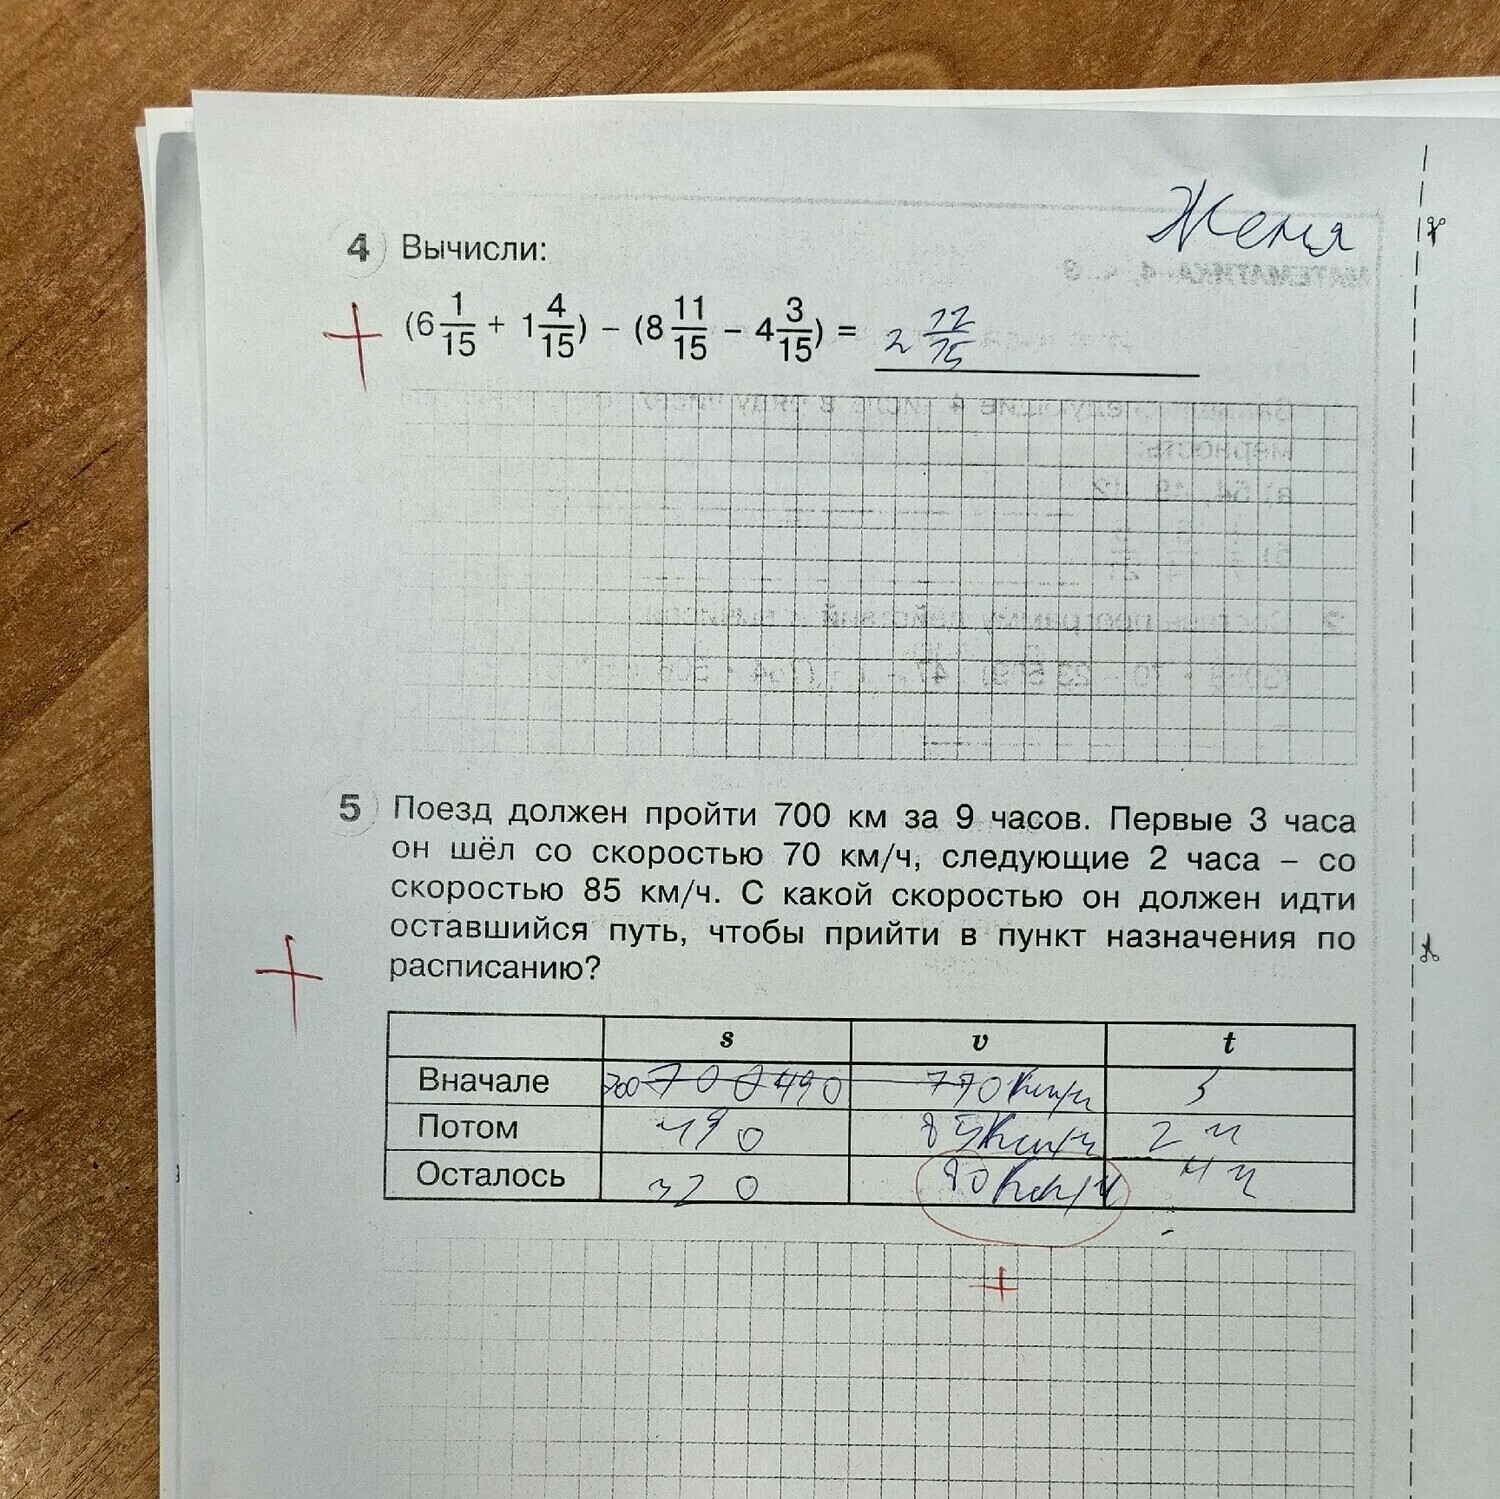 Женя
4 Вычисли:
(6 1/15 + 1 4/15) – (8 11/15 – 4 3/15) = 2 12/15
5 Поезд должен пройти 700 км за 9 часов. Первые 3 часа
он шёл со скоростью 70 км/ч, следующие 2 часа – со
скоростью 85 км/ч. С какой скоростью он должен идти
оставшийся путь, чтобы прийти в пункт назначения по
расписанию?
s v t
Вначале 700 490 70 км/ч 3
Потом 490 85 км/ч 2 ч
Осталось 320 80 км/ч 4 ч